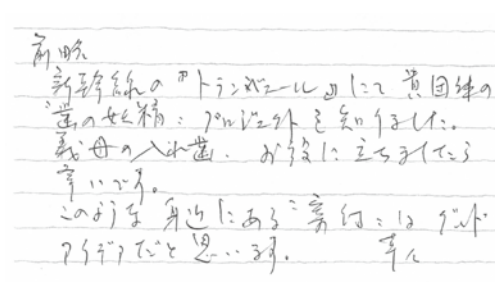 前略
新幹線の『トランヴェール』にて貴団体の
"歯の妖精"プロジェクトを知りました。
義母の入れ歯、お役に立ちましたら
幸いです。
このような身近にある"寄付"はグッド
アイデアだと思います。 草々